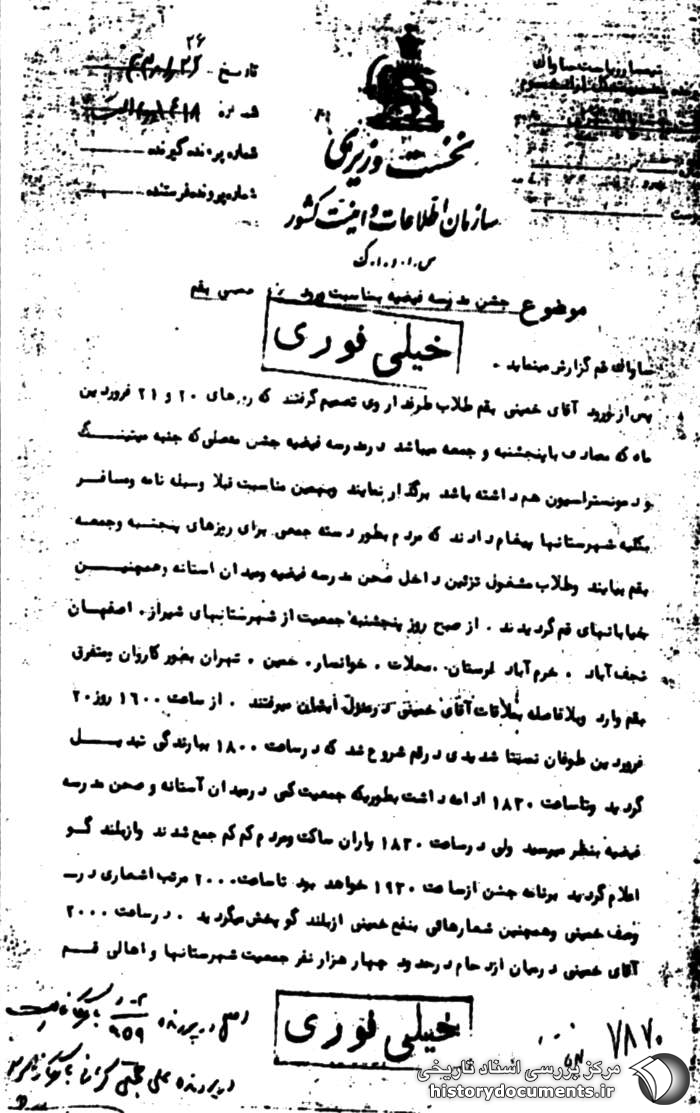 تاریخ
شماره
شماره پرونده گیرنده
شماره پرونده فرستنده
نخست وزیری
سازمان اطلاعات و امنیت کشور
س.ا.و.ا.ک
موضوع جشن مدرسه فیضیه بمناسبت ورود خمینی بقم
خیلی فوری
ساواک قم گزارش مینماید .
پس از ورود آقای خمینی بقم طلاب طرفدار وی تصمیم گرفتند که روزهای ۲۰ و ۲۱ فروردین
ماه که مصادف با پنجشنبه و جمعه میباشد در مدرسه فیضیه جشن مفصلی که جنبه میتینگ
و دمونستراسیون هم داشته باشد برگذار نمایند وبهمین مناسبت قبلا وسیله نامه ومسافر
بکلیه شهرستانها پیغام دادند که مردم بطور دسته جمعی برای روزهای پنجشنبه وجمعه
بقم بیایند وطلاب مشغول تزئین داخل صحن مدرسه فیضیه ومیدان استانه وهمچنین
خیابانهای قم گردیدند . از صبح روز پنجشنبه جمعیت از شهرستانهای شیراز . اصفهان
نجف آباد . خرم آباد لرستان . محلات . خوانسار . خمین . تهران بطور کاروان ومتفرق
بقم وارد وبلافاصله بملاقات آقای خمینی در منزل ایشان میرفتند . از ساعت ۱۶۰۰ روز ۲۰
فروردین طوفان نسبتا شدیدی در قم شروع شد که در ساعت ۱۸۰۰ ببارندگی تبدیل
گردید وتا ساعت ۱۸۳۰ ادامه داشت بطوریکه جمعیت کمی در میدان آستانه و صحن مدرسه
فیضیه بنظر میرسید ولی در ساعت ۱۸۳۰ باران ساکت ومردم کم کم جمع شدند وازبلند گو
اعلام گردید برنامه جشن از ساعت ۱۹۳۰ خواهد بود تا ساعت ۲۰۰۰ مرتب اشعاری در
وصف خمینی وهمچنین شعارهائی بنفع خمینی از بلند گو پخش میگردید . در ساعت ۲۰۰۰
آقای خمینی در میان ازدحام در حدود چهار هزار نفر جمعیت شهرستانها و اهالی قم
خیلی فوری
۷۸۷۰
مرکز بررسی اسناد تاریخی
historydocuments.ir